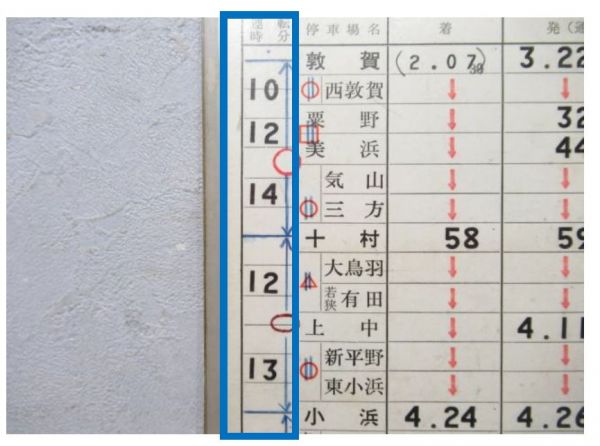 運転時分 停車場名 着 発(通
敦賀 (2.07 30 3.22
10 西敦賀 ↓ ↓
粟野 ↓ 32
12 美浜 ↓ 44
気山 ↓ ↓
14 三方 ↓ ↓
十村 58 59
大鳥羽 ↓ ↓
12 若狭有田 ↓ ↓
上中 ↓ 4.11
新平野 ↓ ↓
13 東小浜 ↓ ↓
小浜 4.24 4.26